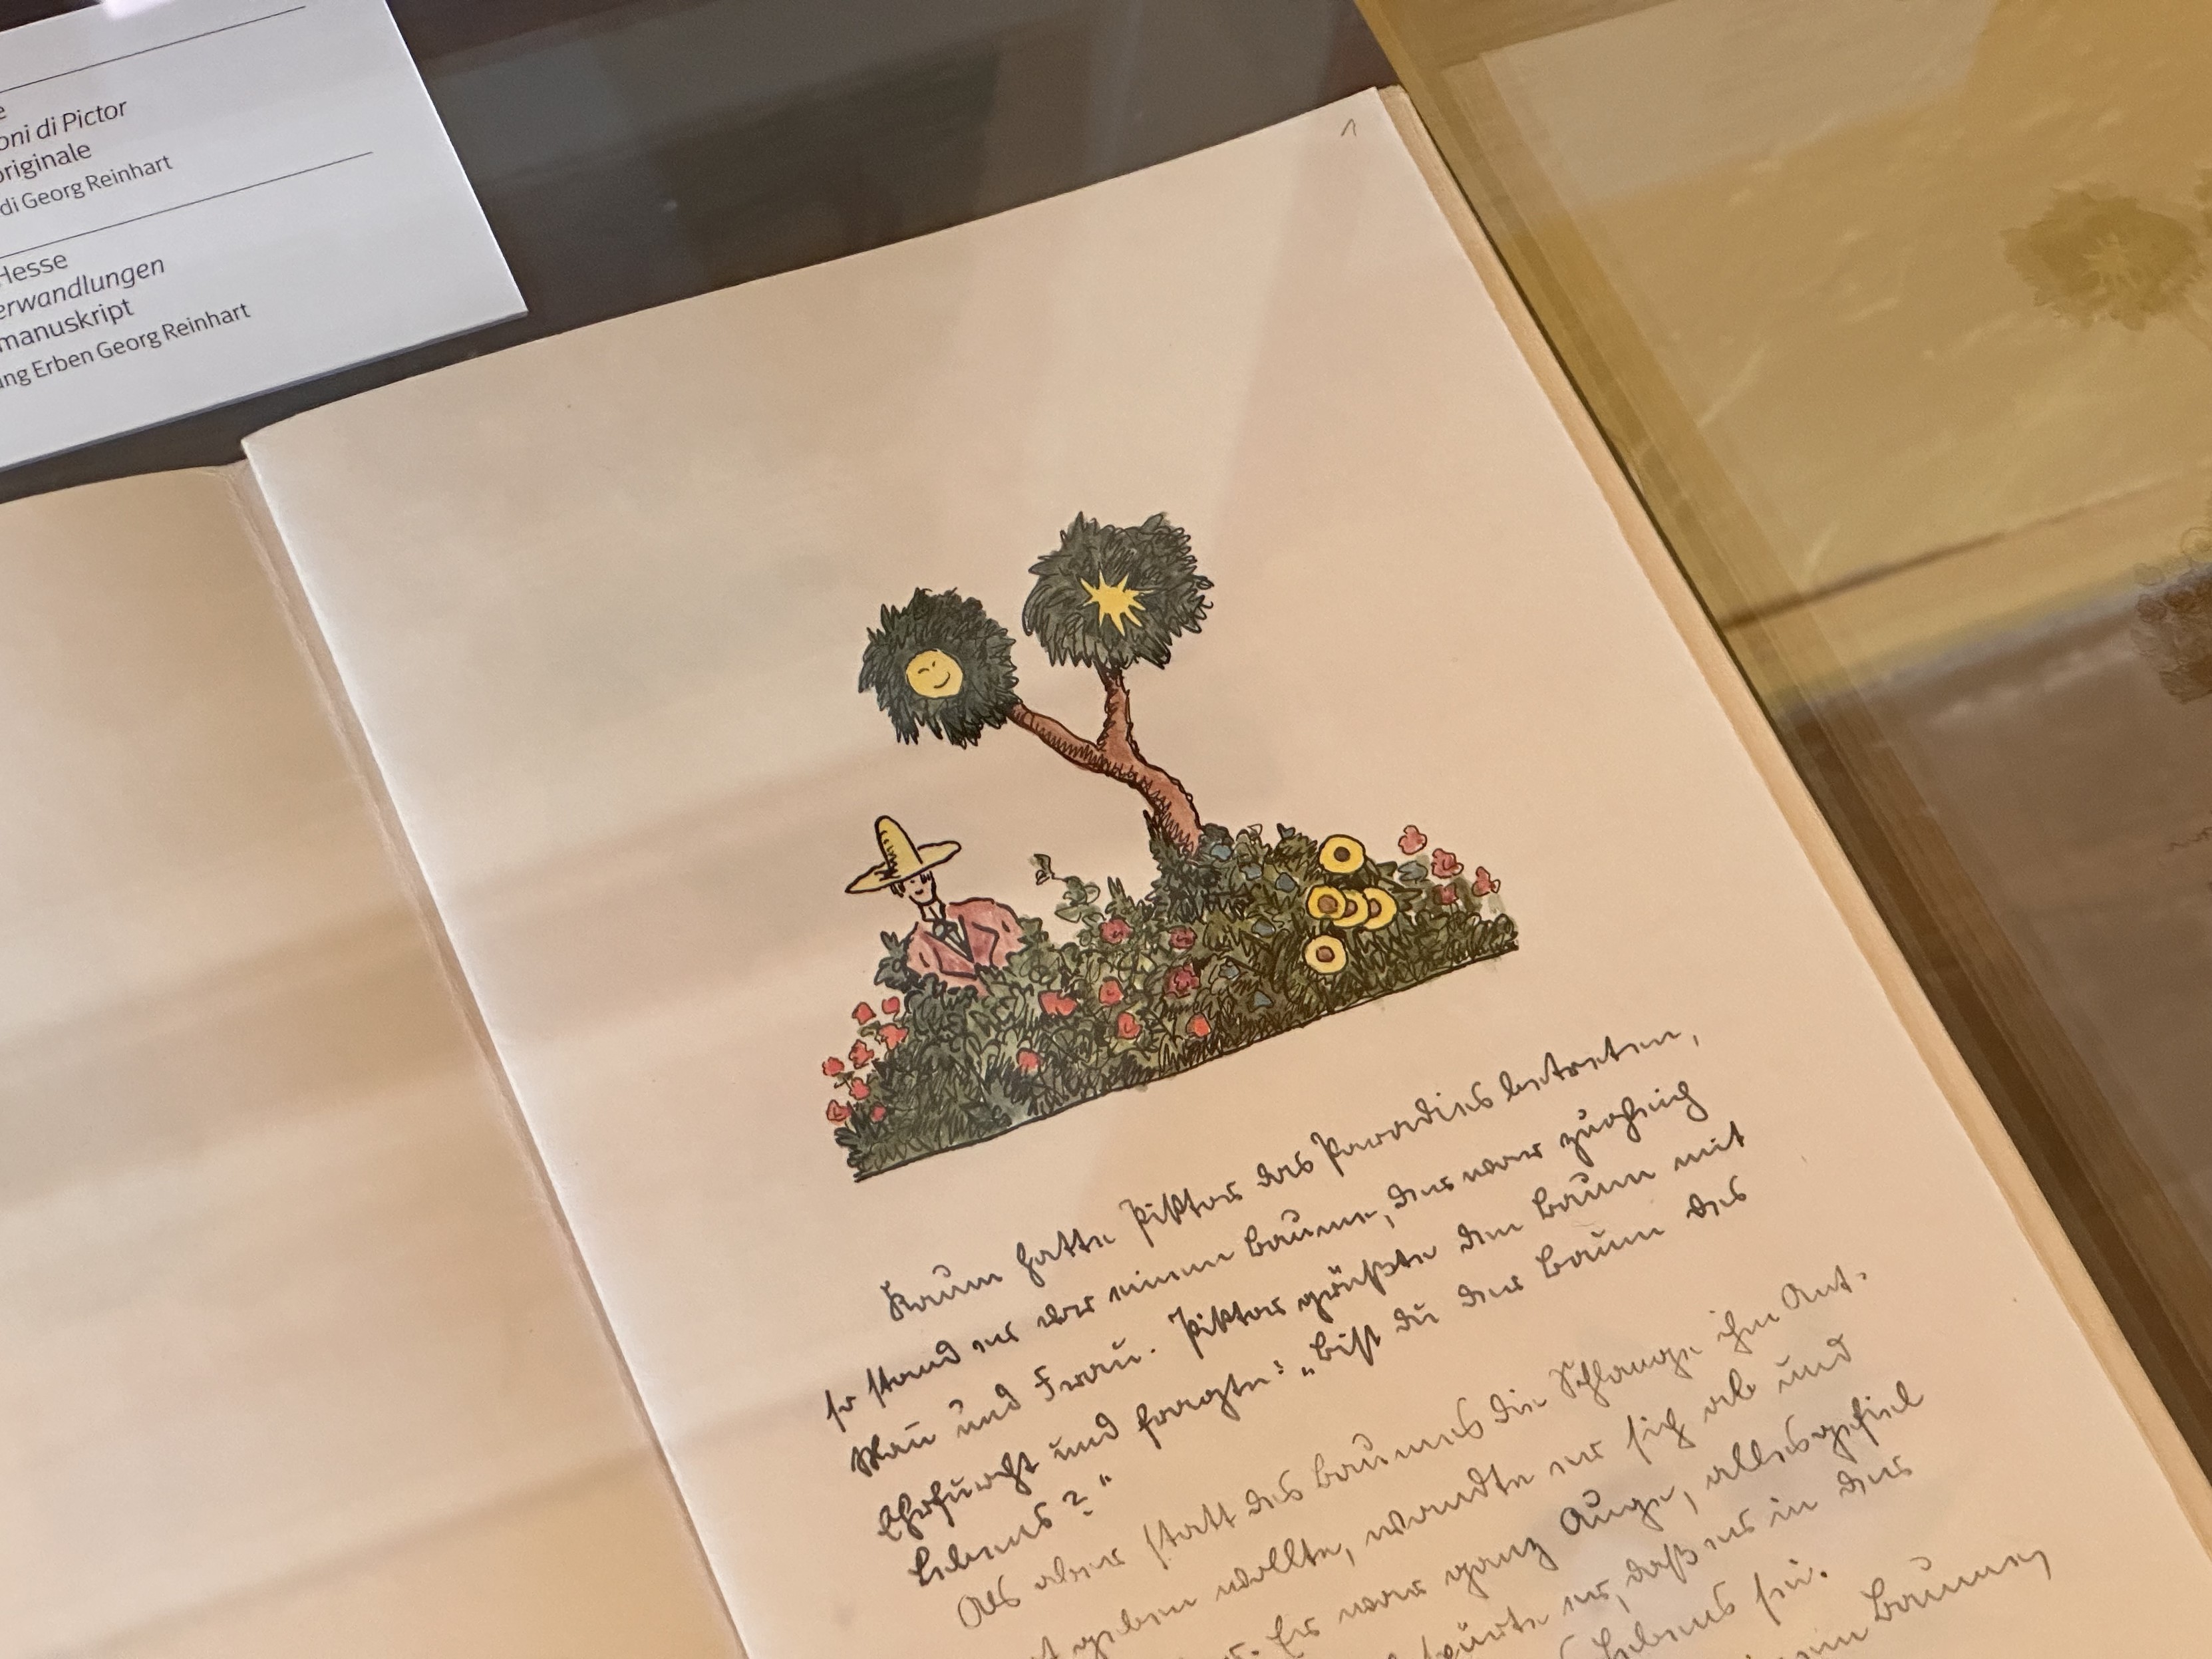 e
oni di Pictor
originale
di Georg Reinhart
Hesse
erwandlungen
manuskript
ng Erben Georg Reinhart
1
Kaum hatte Piktor das Paradies betreten,
so stand er vor einem Baume, der war zugleich
Mann und Frau. Piktor grüßte den Baum mit
Ehrfurcht und fragte: „Bist du der Baum des
Lebens?"
Als aber statt des Baumes die Schlange ihm Ant-
geben wollte, wandte er sich ab und
Er war ganz Auge, alles gefiel
spürte er, daß er in der
Lebens sei.
einen Baum,